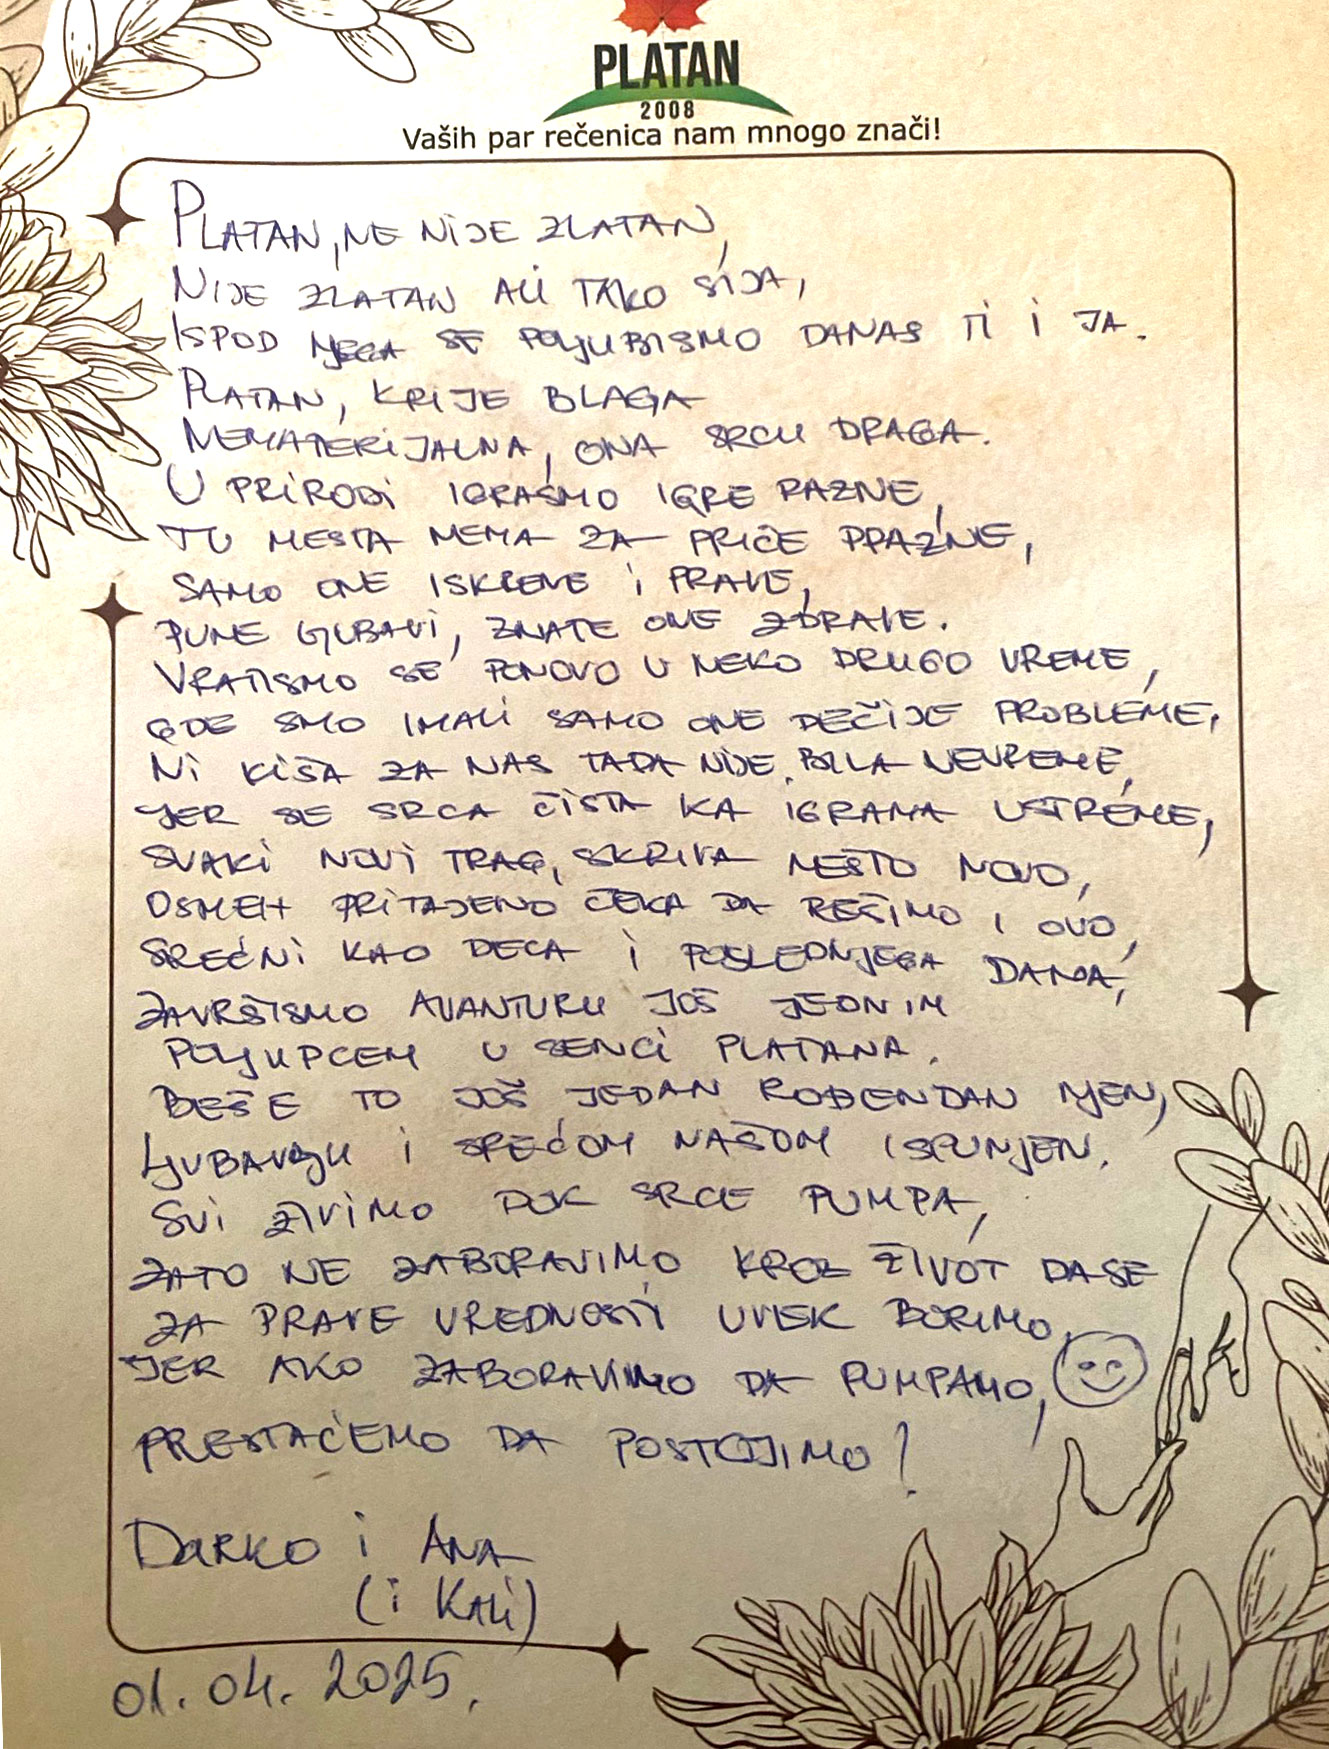 PLATAN
2008
Vaših par rečenica nam mnogo znači!
PLATAN, NE NIJE ZLATAN,
NIJE ZLATAN ALI TAKO SIJA,
ISPOD NJEGA SE POLJUBISMO DANAS TI I JA.
PLATAN, KRIJE BLAGA
NEMATERIJALNA, ONA SRCU DRAGA.
U PRIRODI IGRASMO IGRE RAZNE,
TU MESTA NEMA ZA PRIČE PRAZNE,
SAMO ONE ISKRENE I PRAVE,
PUNE LJUBAVI, ZNATE ONE ZDRAVE.
VRATISMO SE PONOVO U NEKO DRUGO VREME,
GDE SMO IMALI SAMO ONE DEČIJE PROBLEME,
NI KIŠA ZA NAS TADA NIJE BILA NEVREME,
JER SE SRCA ČISTA KA IGRAMA USTREME,
SVAKI NOVI TRAG, SKRIVA NEŠTO NOVO,
OSMEH PRITAJENO ČEKA DA REŠIMO I OVO,
SREĆNI KAO DECA I POSLEDNJEGA DANA,
ZAVRŠISMO AVANTURU JOŠ JEDNIM
POLJUPCEM U SENCI PLATANA.
BEŠE TO JOŠ JEDAN ROĐENDAN NJEN,
LJUBAVLJU I SREĆOM NAŠOM ISPUNJEN.
SVI ŽIVIMO DOK SRCE PUMPA,
ZATO NE ZABORAVIMO KROZ ŽIVOT DA SE
ZA PRAVE VREDNOSTI UVEK BORIMO,
JER AKO ZABORAVIMO DA PUMPAMO,
PRESTAĆEMO DA POSTOJIMO!
DARKO i ANA
(i KALI)
01.04.2025.